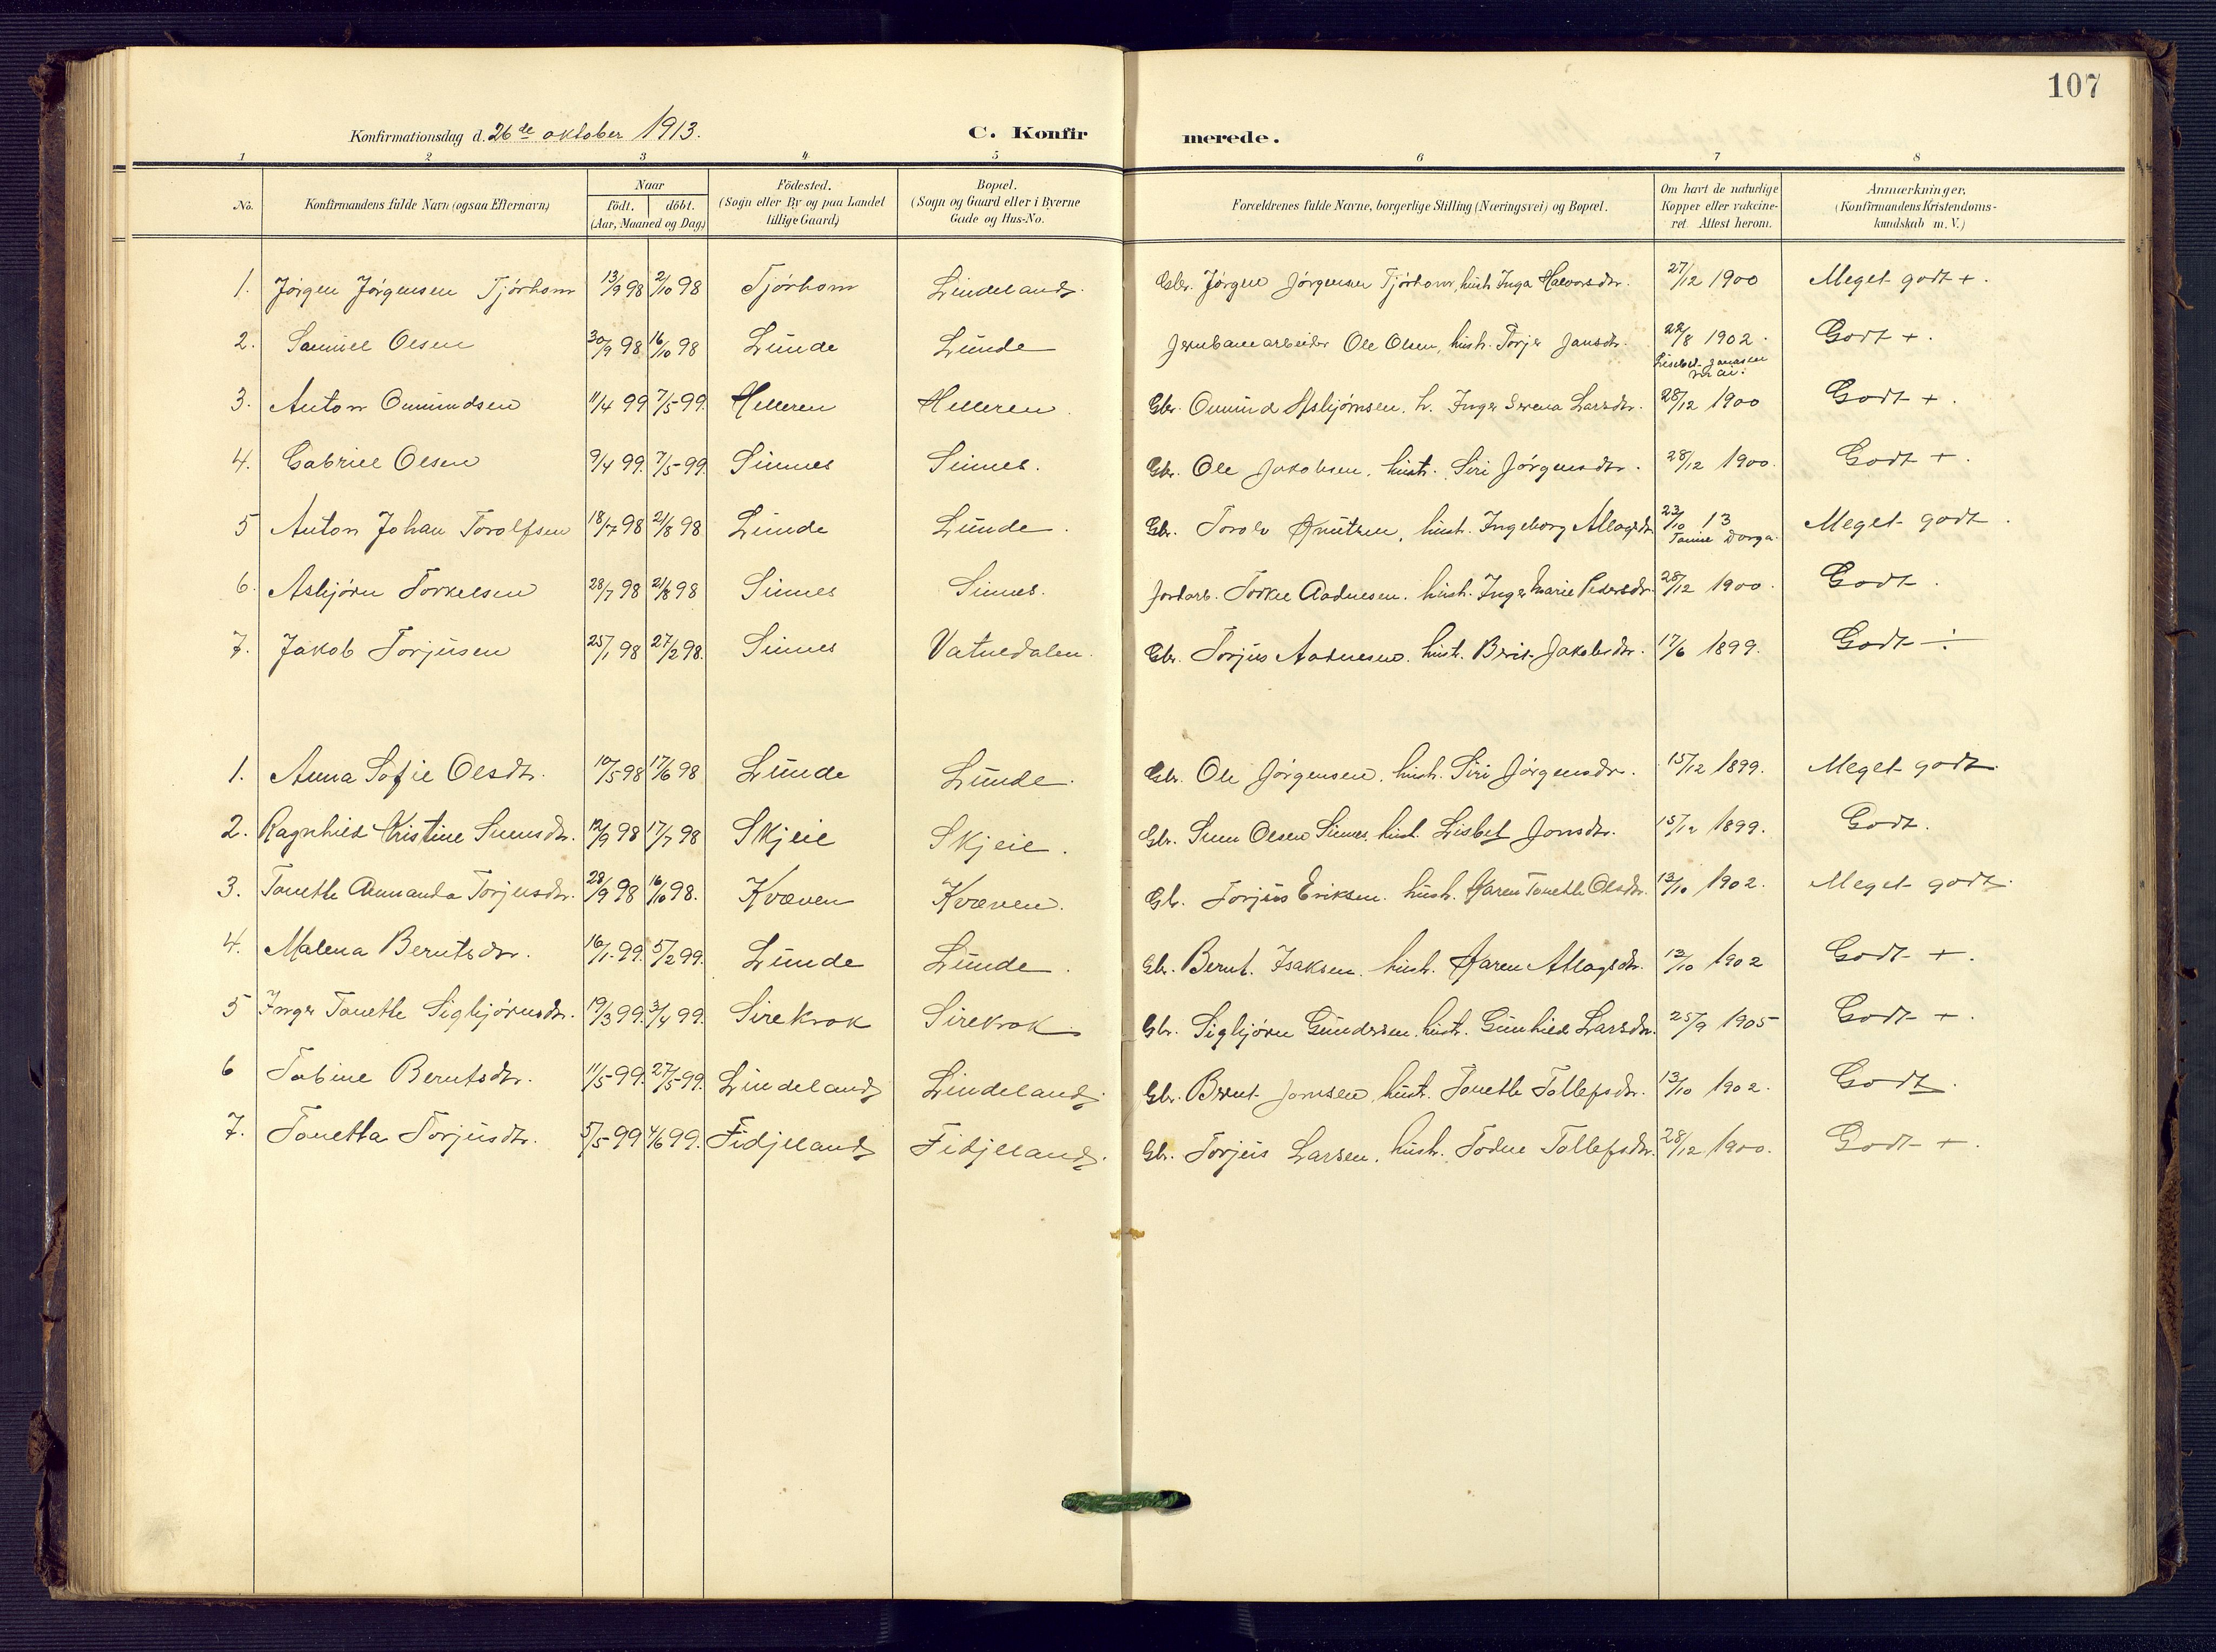 107
Konfirmationsdag d. 26de oktober 1913. C. Konfirmerede.
1 2 3 4 5 6 7 8
No. Konfirmandens fulde Navn (ogsaa Efternavn) Naar født. døbt. (Aar, Maaned og Dag) Fødested. (Sogn eller By og paa Landet tillige Gaard) Bopæl. (Sogn og Gaard eller i Byerne Gade og Hus-No. Forældrenes fulde Navne, borgerlige Stilling (Næringsvei) og Bopæl. Om havt de naturlige Kopper eller vakcineret. Attest herom. Anmærkninger. (Konfirmandens Kristendomskundskab m. V.)
1. Jørgen Jørgensen Tjørhom 13/9 98 2/10 98 Tjørhom Lindeland. Gbr. Jørgen Jørgensen Tjørhom, hust. Inga Halvorsdtr. 27/12 1900 Meget godt +.
2. Samuel Olsen 30/9 98 16/10 98 Lunde Lunde Jernbanearbeider Ole Olsen, hust. Torje Jansdtr. 22/8 1902. Godt +.
3. Anton Omundsen 11/4 99 7/5 99. Helleren Helleren. Gbr. Omund Asbjørnsen. h. Inger Serena Larsdtr. 28/12 1900 Godt +.
4. Gabriel Olsen 9/4 99. 7/5 99. Sinnes Sinnes. Gbr. Ole Jakobsen. hust. Siri Jørgensdtr. 28/12 1900. Godt +.
5 Anton Johan Torolfsen 18/7 98 21/8 98 Lunde Lunde. Gbr. Torolv Knutsen, hust. Ingeborg Atlagsdtr. 23/10 13 Meget godt.
6. Asbjørn Torkelsen 28/7 98 21/8 98 Sinnes Sinnes. Jordarb. Torkel Aadnesen. hust. Inger Marie Pedersdtr. 28/12 1900. Godt.
7. Jakob Torjusen 25/1 98 27/2 98. Sinnes Vatnedalen. Gbr. Torjus Aadnesen. hust. Brit Jakobsdtr. 17/6 1899. Godt ÷
1. Anna Sofie Olsdtr. 10/5 98 17/6 98 Lunde Lunde. Gbr. Ole Jørgensen. hust. Siri Jørgensdtr. 15/12 1899. Meget godt.
2. Ragnhild Kristine Sunsdtr. 12/9 98 17/7 98 Skjeie Skjeie. Gbr. Olsen Sinnes. hust. Lisbet Jonsdtr. 15/12 1899. Godt.
3. Tonette Amanda Torjusdtr. 28/9 98 16/10 98. Kvæven Kvæven. Gbr. Torjus Eriksen. hust. Karen Tonette Olsdtr. 13/10 1902. Meget godt.
4. Malena Berntsdtr. 16/1 99. 5/2 99. Lunde Lunde. Gbr. Bernt Isaksen. hust. Karen Atlagsdtr. 13/10 1902 Godt +.
5 Inger Tonette Sigbjørnsdtr. 19/3 99. 3/4 99. Sirekrok Sirekrok Gbr. Sigbjørn Gundersen. hust. Gunhild Larsdtr. 25/9 1905 Godt +.
6 Tobine Berntsdtr. 11/5 99. 27/5 99. Lindeland Lindeland. Gbr. Bernt Jonsen, hust. Tonette Tollefsdtr. 13/10 1902. Godt.
7. Tonetta Torjusdtr. 5/5 99 4/6 99. Fidjeland Fidjeland. Gbr. Torjus Larsen. hust. Todne Tollefsdtr. 28/12 1900. Godt +.